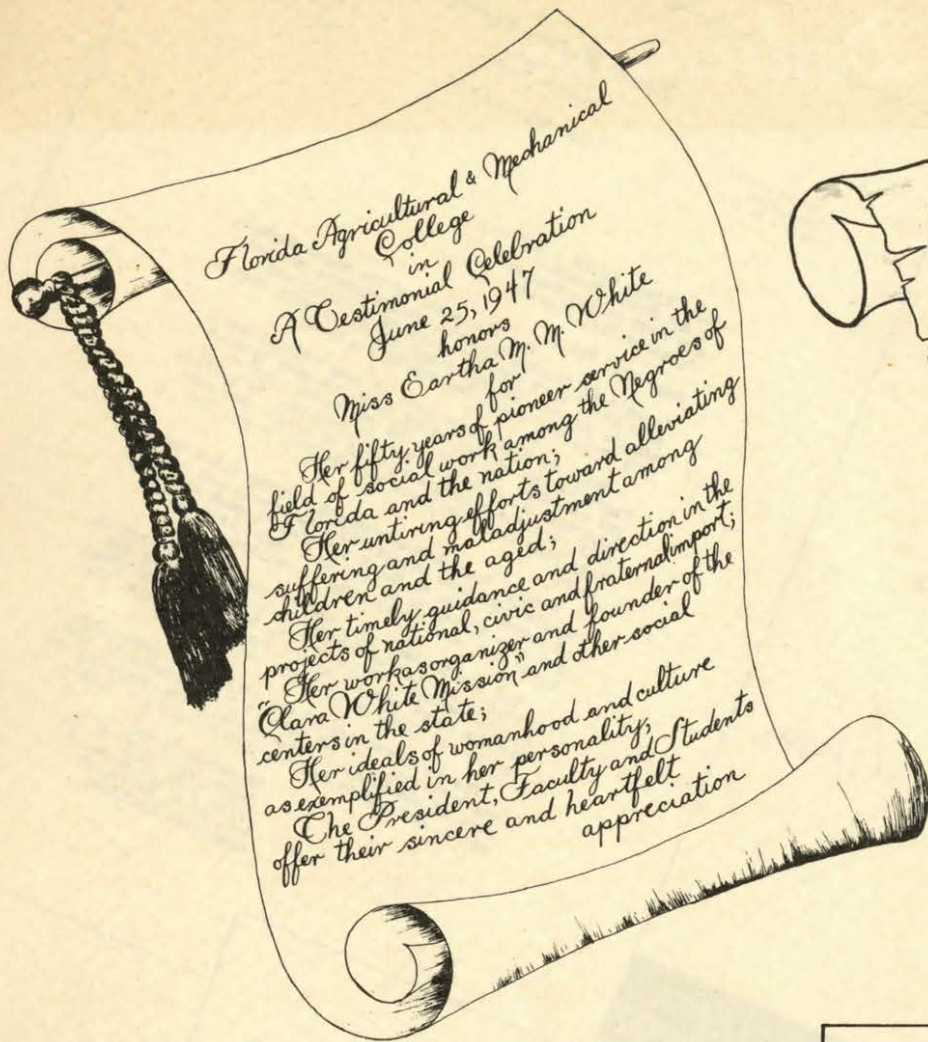 Florida Agricultural & Mechanical
College
in
A Testimonial Celebration
June 25, 1947
honors
Miss Eartha M. M. White
for
Her fifty years of pioneer service in the
field of social work among the Negroes of
Florida and the nation;
Her untiring efforts toward alleviating
suffering and maladjustment among
children and the aged;
Her timely guidance and direction in the
projects of national, civic and fraternal import;
Her work as organizer and founder of the
"Clara White Mission" and other social
centers in the state;
Her ideals of womanhood and culture
as exemplified in her personality,
The President, Faculty and Students
offer their sincere and heartfelt
appreciation